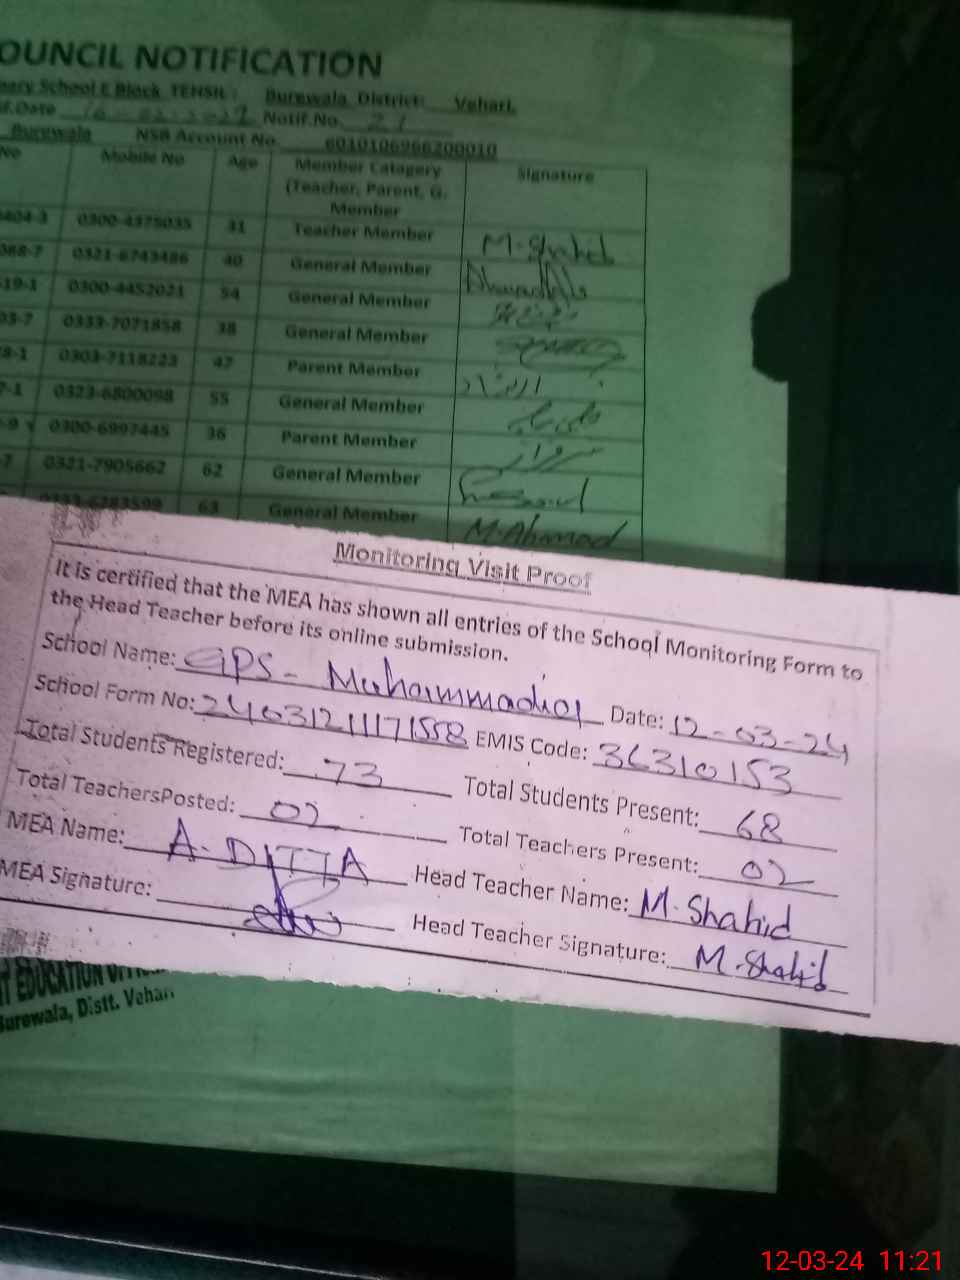 OUNCIL NOTIFICATION
School E Block TEHSIL: Burewala District: Vehari.
Date Notif.No. 21
Burewala NSB Account No. 6010106966200010
No Mobile No Age Member Catagery (Teacher, Parent, G. Member Signature
404-3 0300-4375035 31 Teacher Member M.Shahid
088-7 0321-6743486 40 General Member
19-1 0300-4452021 54 General Member
03-7 0333-7071858 38 General Member
8-1 0303-7118223 47 Parent Member
7-1 0323-6800098 55 General Member
-9 0300-6997445 36 Parent Member
7 0321-7905662 62 General Member
0333-6283599 63 General Member M.Ahmad
Monitoring Visit Proof
It is certified that the MEA has shown all entries of the School Monitoring Form to
the Head Teacher before its online submission.
School Name: GPS - Muhammadia Date: 12-03-24
School Form No: EMIS Code: 36310153
Total Students Registered: 73 Total Students Present: 68
Total TeachersPosted: 02 Total Teachers Present: 02
MEA Name: A. DITTA Head Teacher Name: M.Shahid
MEA Signature: Head Teacher Signature: M.Shahid
EDUCATION
Burewala, Distt. Vehari
12-03-24 11:21